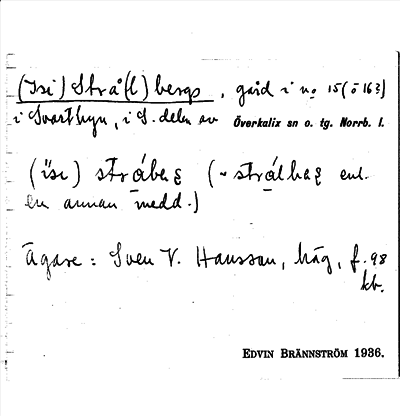 (Isi) Strå(l)bergs, gård i no 15 (o 16?)
i Svartbyn, i S. delen av Överkalix sn o. tg. Norrb. l.
(ı̈sı) stråbæʂ (~ strålbæʂ enl.
en annan medd.)
Ägare: Sven V. Hansson, häg, f. 98
kb.
EDVIN BRÄNNSTRÖM 1936.